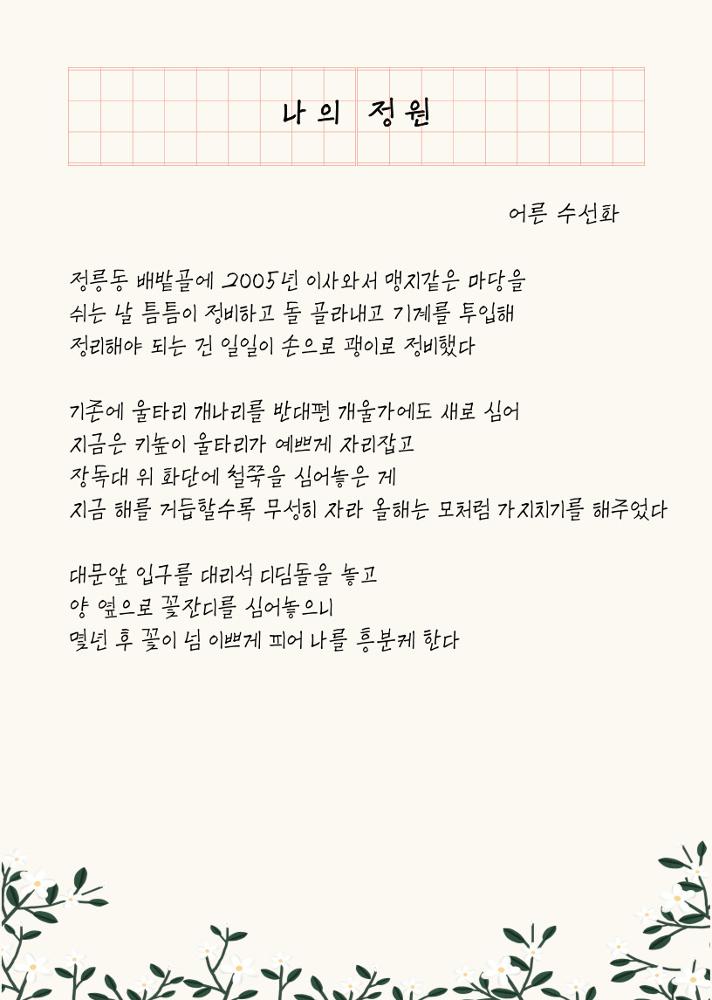 나의 정원
어른 수선화
정릉동 배밭골에 2005년 이사와서 맹지같은 마당을
쉬는 날 틈틈이 정비하고 돌 골라내고 기계를 투입해
정리해야 되는 건 일일이 손으로 괭이로 정비했다
기존에 울타리 개나리를 반대편 개울가에도 새로 심어
지금은 키높이 울타리가 예쁘게 자리잡고
장독대 위 화단에 철쭉을 심어놓은 게
지금 해를 거듭할수록 무성히 자라 올해는 모처럼 가지치기를 해주었다
대문앞 입구를 대리석 디딤돌을 놓고
양 옆으로 꽃잔디를 심어놓으니
몇년 후 꽃이 넘 이쁘게 피어 나를 흥분케 한다